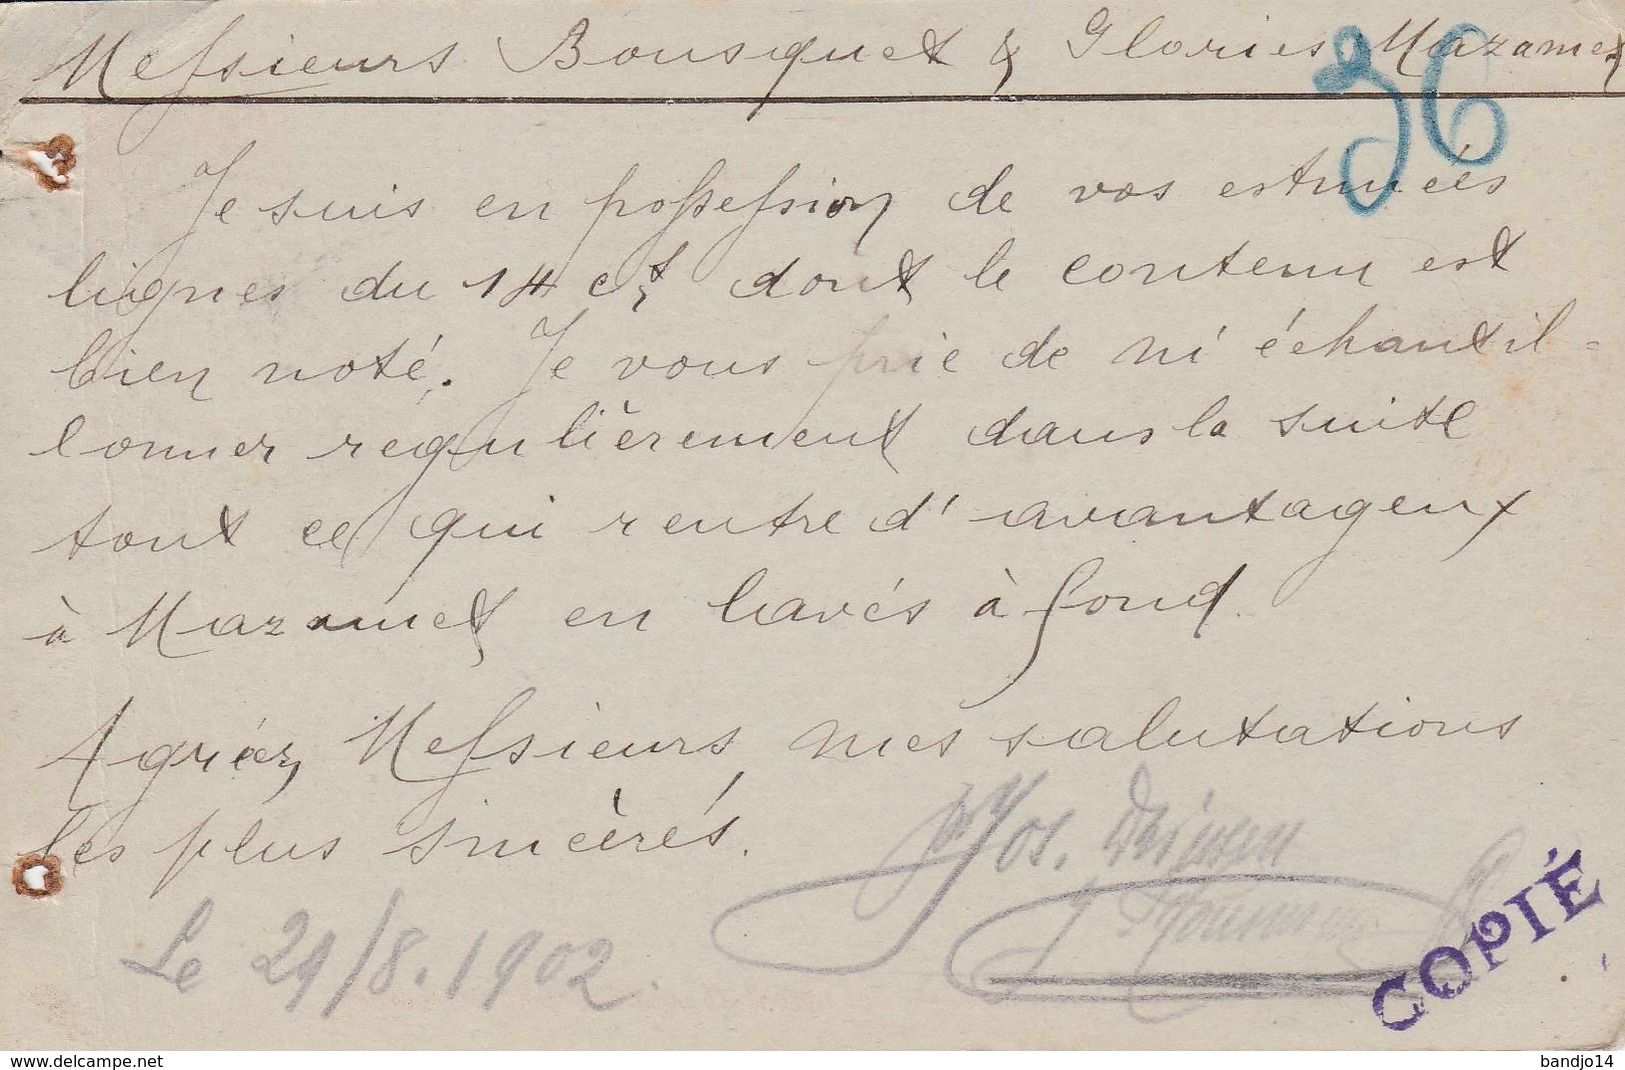 Messieurs Bousquet & Glories Mazamet
36
Je suis en possession de vos estimées
lignes du 14 ct, dont le contenu est
bien noté. Je vous prie de m' échantil=
lonner régulièrement dans la suite
tout ce qui rentre d' avantageux
à Mazamet en lavés à fond.
Agréez, Messieurs, mes salutations
les plus sincères.
Jos.
Le 29/8.1902.
COPIÉ
www.delcampe.net
bandjo14